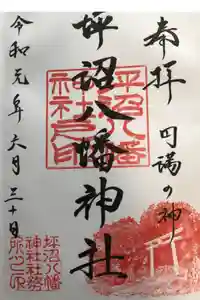 奉拝 円満の神
坪沼八幡神社
坪沼八幡
神社之印
令和元年六月三十日
坪沼八幡
神社社務
所之印